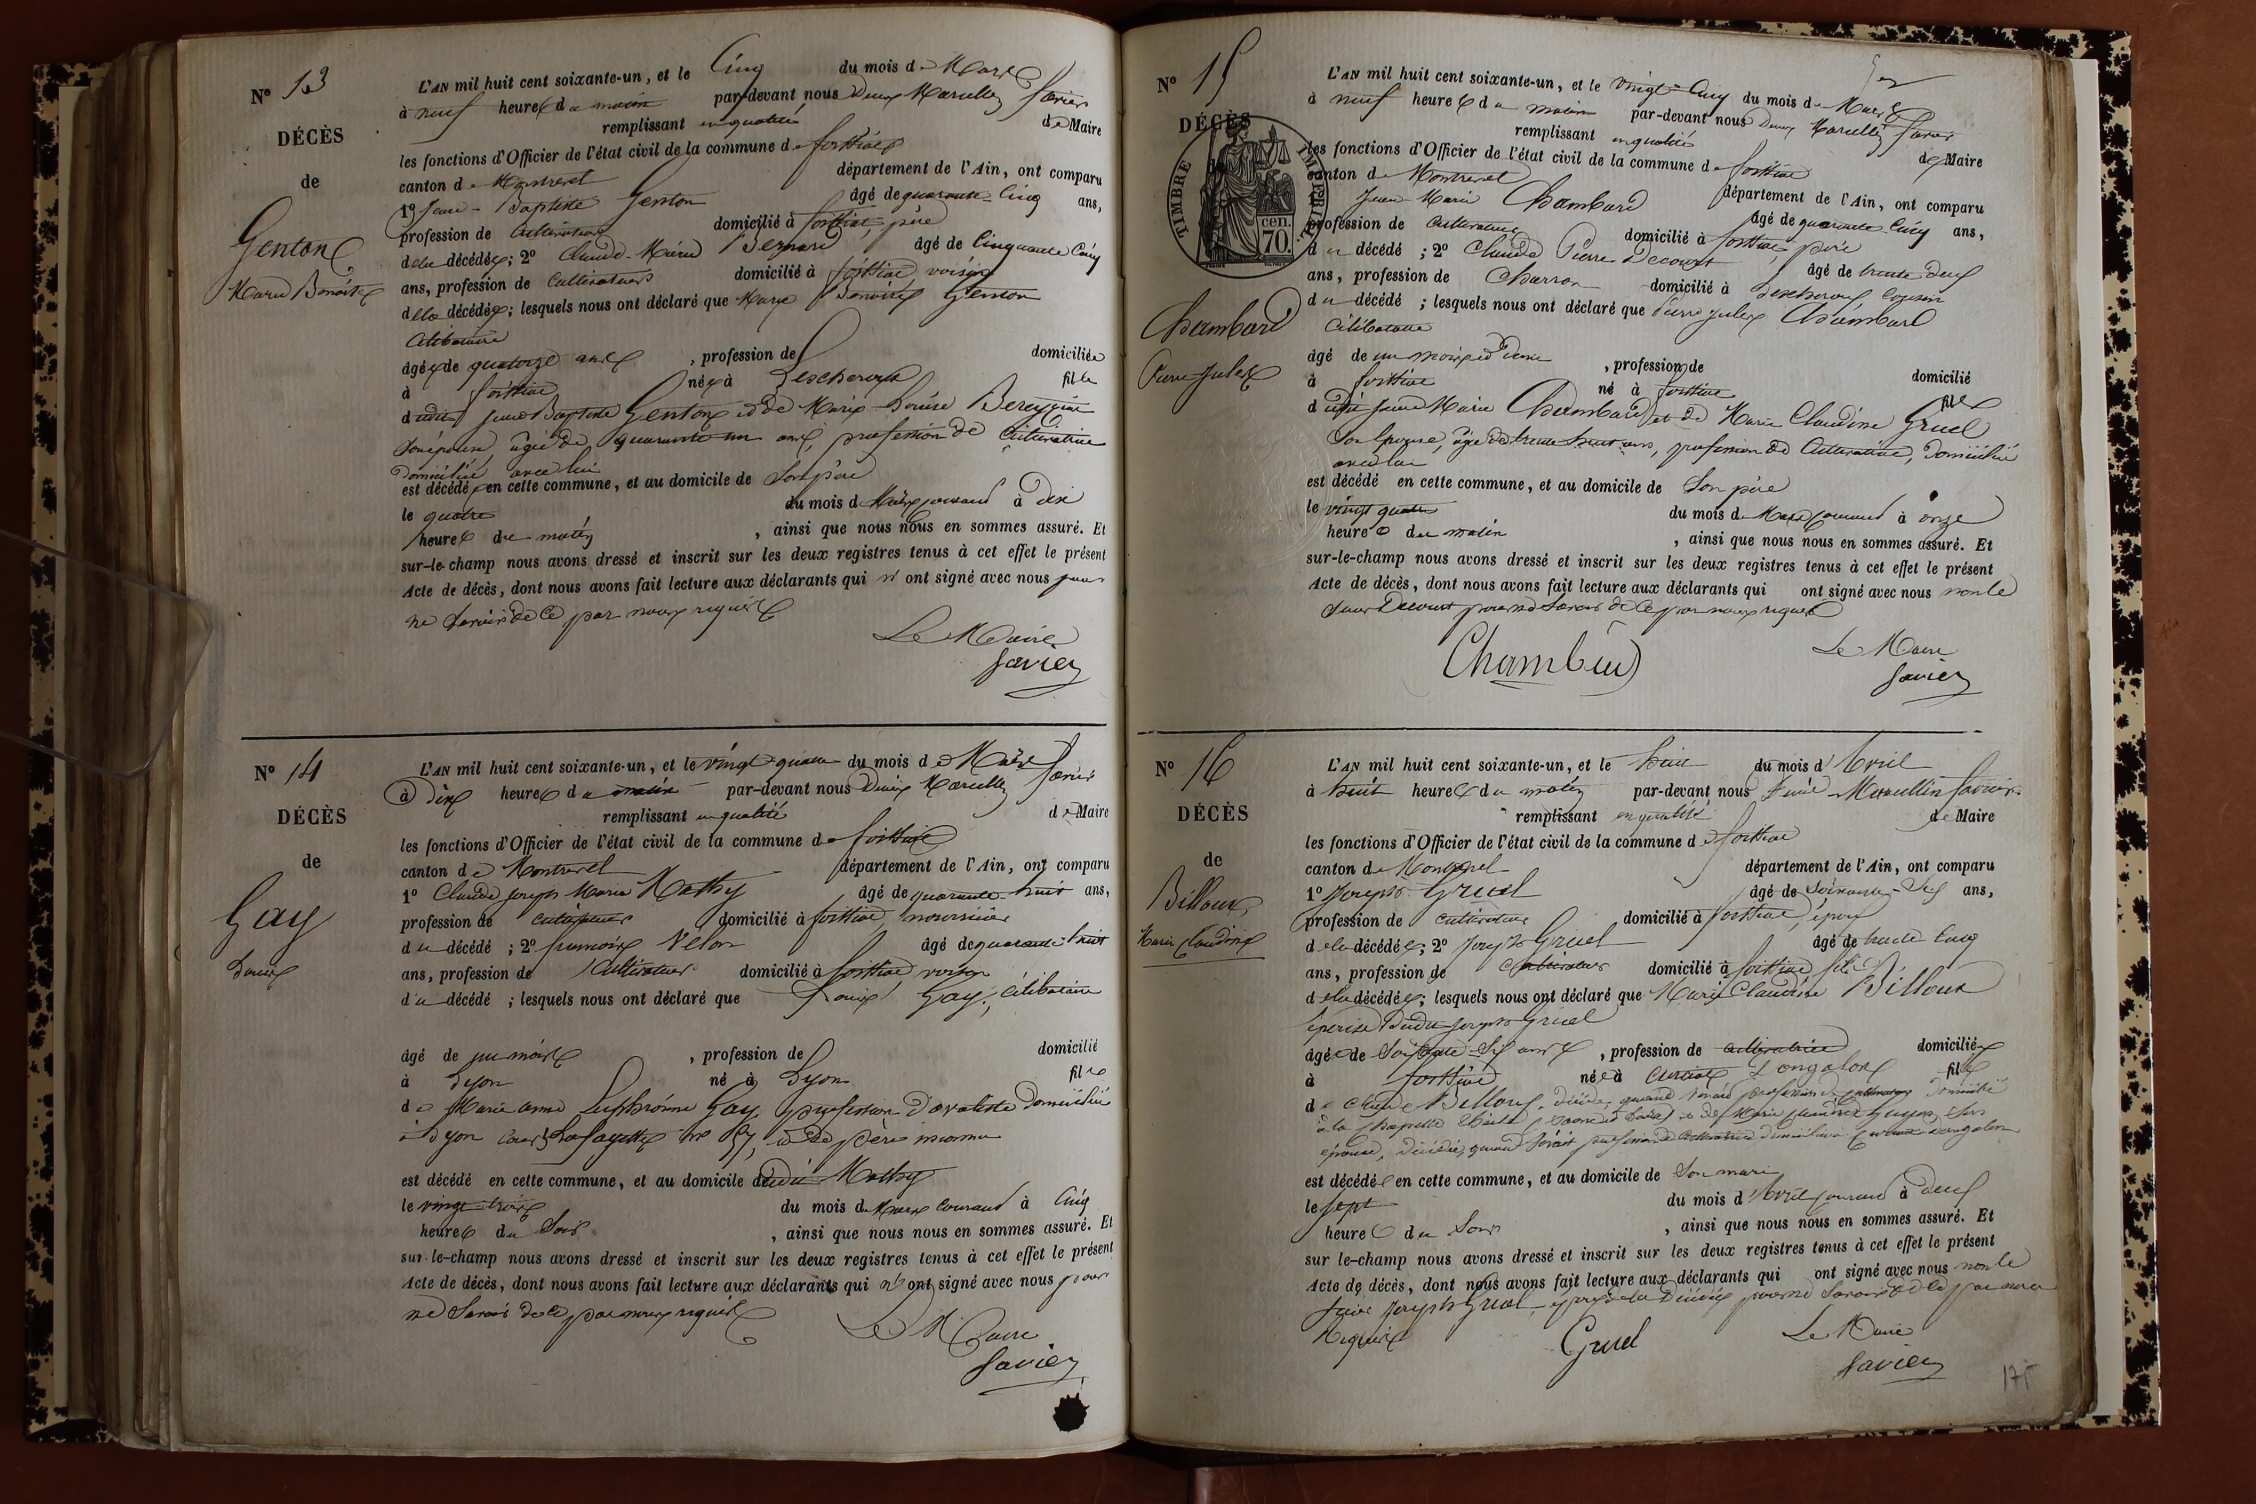 N° 13
DÉCÈS
de
Genton
Marie Benoite
L'AN mil huit cent soixante-un, et le Cinq du mois de Mars
à neuf heures du matin par-devant nous Marcellin Favier
remplissant en qualité de Maire
les fonctions d'Officier de l'état civil de la commune de foissiat
canton de Montrevel département de l'Ain, ont comparu
1° Jean-Baptiste Genton âgé de quarante-Cinq ans,
profession de Cultivateur domicilié à foissiat, père
de la décédée; 2° Claude-Marie Bernard âgé de Cinquante Cinq
ans, profession de Cultivateur domicilié à foissiat, voisin
de la décédée; lesquels nous ont déclaré que Marie Benoite Genton
Célibataire
âgée de quatorze ans , profession de domiciliée
à foissiat née à Lescheroux fille
dudit Jean Baptiste Genton et de Marie Louise
Son épouse, âgée de quarante un ans, profession de Cultivatrice
Domiciliée avec lui
est décédée en cette commune, et au domicile de Son père
le quatre du mois de Mars courant à Dix
heures du matin , ainsi que nous nous en sommes assuré. Et
sur-le-champ nous avons dressé et inscrit sur les deux registres tenus à cet effet le présent
Acte de décès, dont nous avons fait lecture aux déclarants qui n'ont signé avec nous pour
ne Savoir de ce par nous requis
Le Maire
Favier
N° 14
DÉCÈS
de
Gay
Louis
L'AN mil huit cent soixante-un, et le vingt-quatre du mois de Mars
à Dix heures du matin par-devant nous Marcellin Favier
remplissant en qualité de Maire
les fonctions d'Officier de l'état civil de la commune de foissiat
canton de Montrevel département de l'Ain, ont comparu
1° Claude Joseph Marie Mathy âgé de quarante-huit ans,
profession de cultivateur domicilié à foissiat, nourricier
du décédé ; 2° françois Velon âgé de quarante-huit
ans, profession de Cultivateur domicilié à foissiat, voisin
du décédé ; lesquels nous ont déclaré que Louis Gay, célibataire
âgé de un mois , profession de domicilié
à Lyon né à Lyon fils
de Marie anne Gay, profession d'ovaliste Domiciliée
à Lyon Cours Lafayette et de père inconnu
est décédé en cette commune, et au domicile dudit Mathy
le vingt-trois du mois de Mars Courant à Cinq
heures du Soir , ainsi que nous nous en sommes assuré. Et
sur-le-champ nous avons dressé et inscrit sur les deux registres tenus à cet effet le présent
Acte de décès, dont nous avons fait lecture aux déclarants qui n'ont signé avec nous pour
ne Savoir de ce par nous requis
Le Maire
Favier
N° 15
DÉCÈS
TIMBRE IMPÉRIAL
70 cen.
Chambard
Pierre Jules
L'AN mil huit cent soixante-un, et le vingt-Cinq du mois de Mars
à neuf heures du matin par-devant nous Marcellin Favier
remplissant en qualité de Maire
les fonctions d'Officier de l'état civil de la commune de foissiat
canton de Montrevel département de l'Ain, ont comparu
Jean-Marie Chambard âgé de quarante-Cinq ans,
profession de Cultivateur domicilié à foissiat, père
du décédé ; 2° Claude Pierre Decourt âgé de trente-deux
ans, profession de Charron domicilié à Lescheroux, Cousin
du décédé ; lesquels nous ont déclaré que Pierre Jules Chambard
Célibataire
âgé de un mois et Demi , profession de domicilié
à foissiat né à foissiat fils
dudit Jean Marie Chambard et de Marie Claudine Gruel
Son épouse, âgée de trente huit ans, profession de Cultivatrice, Domiciliée
avec lui
est décédé en cette commune, et au domicile de Son père
le vingt quatre du mois de Mars courant à onze
heures du matin , ainsi que nous nous en sommes assuré. Et
sur-le-champ nous avons dressé et inscrit sur les deux registres tenus à cet effet le présent
Acte de décès, dont nous avons fait lecture aux déclarants qui ont signé avec nous non le
Sieur Decourt pour ne Savoir de ce par nous requis
Le Maire
Favier
N° 16
DÉCÈS
de
Billoux
Marie Claudine
L'AN mil huit cent soixante-un, et le huit du mois d'Avril
à huit heures du matin par-devant nous Marcellin Favier
remplissant en qualité de Maire
les fonctions d'Officier de l'état civil de la commune de foissiat
canton de Montrevel département de l'Ain, ont comparu
1° Joseph Gruel âgé de Soixante-Six ans,
profession de Cultivateur domicilié à foissiat, époux
de la décédée; 2° Joseph Gruel âgé de trente Cinq
ans, profession de Cultivateur domicilié à foissiat, fils
de la décédée; lesquels nous ont déclaré que Marie Claudine Billoux
épouse Dudit Joseph Gruel
âgée de Soixante-Six ans , profession de cultivatrice domiciliée
à foissiat née à Curciat Dongalon fille
de Claude Billoux
épouse, Décédée,
est décédée en cette commune, et au domicile de Son mari
le Sept du mois d'Avril courant à deux
heures du Soir , ainsi que nous nous en sommes assuré. Et
sur le-champ nous avons dressé et inscrit sur les deux registres tenus à cet effet le présent
Acte de décès, dont nous avons fait lecture aux déclarants qui ont signé avec nous non le
Sieur Joseph Gruel, époux de la Décédée pour ne Savoir de ce par nous
Requis
Gruel
Le Maire
Favier
175